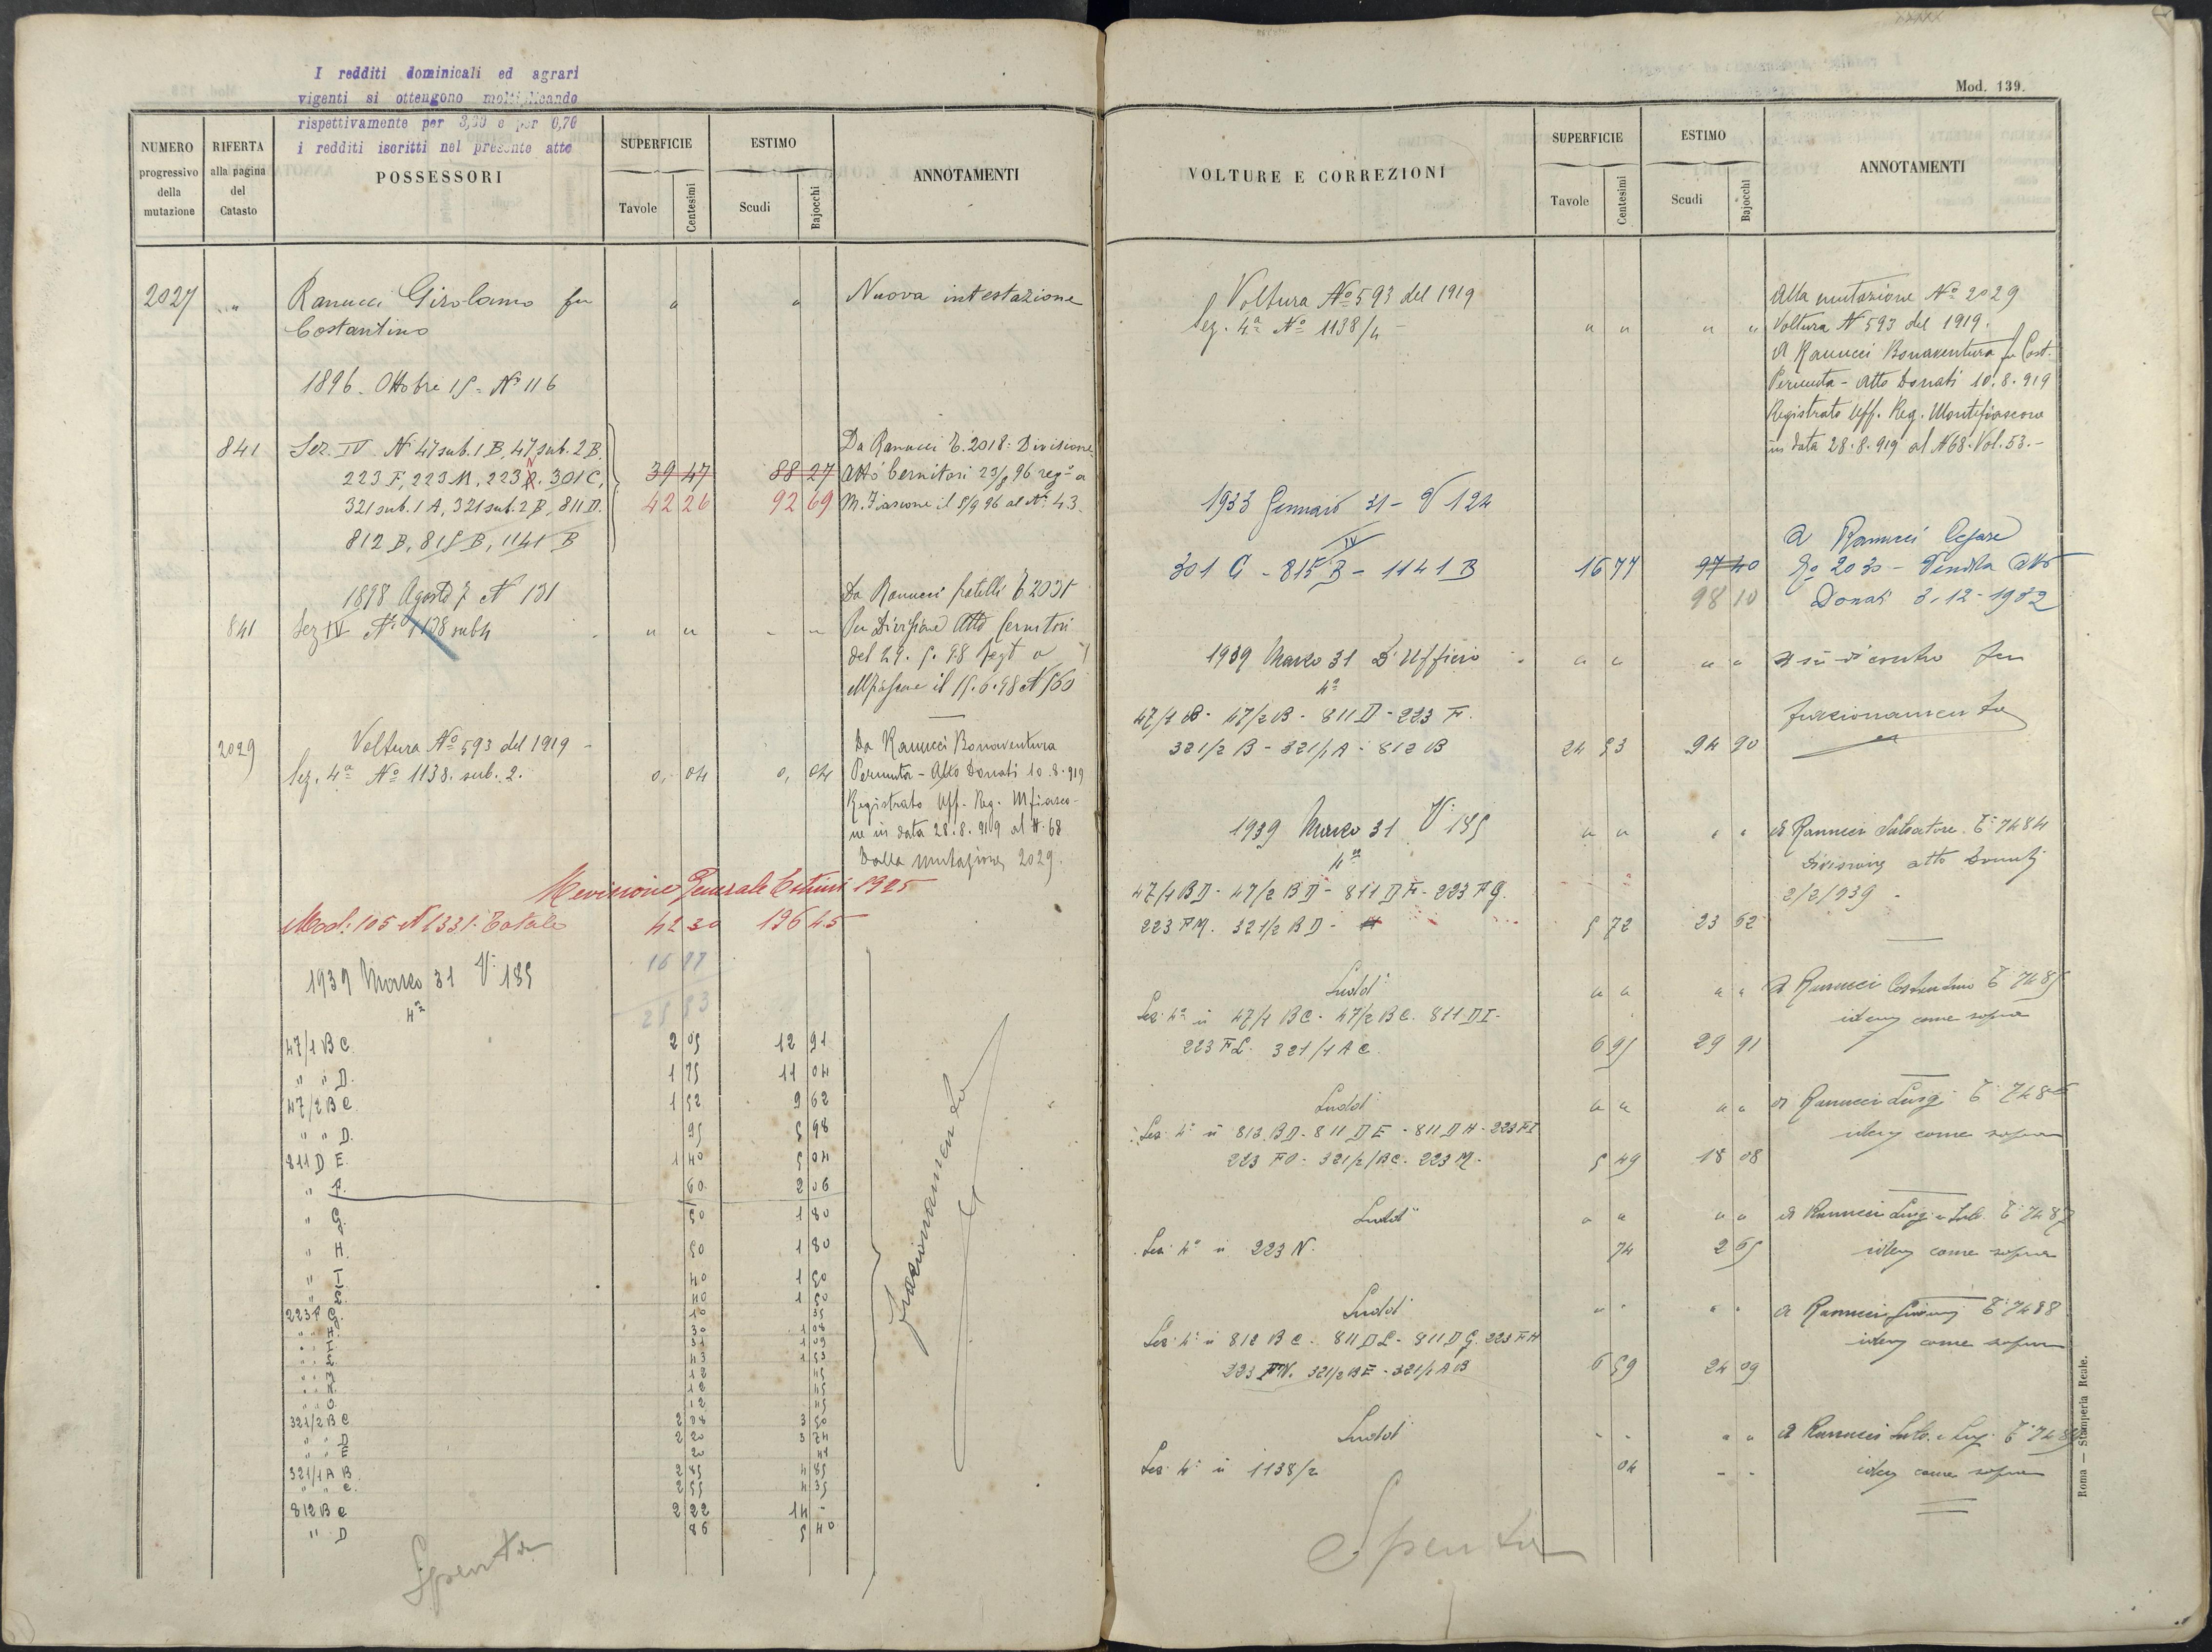 I redditi dominicali ed agrari
vigenti si ottengono moltiplicando
rispettivamente per 3,30 e per 0,70
i redditi iscritti nel presente atto
NUMERO progressivo della mutazione
RIFERTA alla pagina del Catasto
POSSESSORI
SUPERFICIE
Tavole Centesimi
ESTIMO
Scudi Bajocchi
ANNOTAMENTI
2027 " Ranucci Girolamo fu " " Nuova intestazione
Costantino
1896. Ottobre 15 - Nº 116
841 Sez. IV Nº 47 sub. 1 B, 47 sub. 2 B. Da Ranucci E. 2018: Divisione
223 F, 223 M, 223 N. 301 C, 39 47 88 27 Atto Cernitori 23/8 96 regº a
321 sub. 1 A, 321 sub. 2 B, 811 D. 42 26 92 69 M. Fiascone il 5/9 96 al Nº 43.
812 B, 815 B, 1141 B
1898 Agosto 7 N 131 Da Ranucci fratelli E 2031
841 Sez IV Nº 1138 sub 4 " " - " Per Divisione Atto Cernitori
del 29. 5. 98 Regt a
Mfiascone il 15.6.98 N 560
2029 Voltura Nº 593 del 1919 - Da Ranucci Bonaventura
Sez. 4ª Nº 1138. sub. 2. 0, 04 0, 04 Permuta - Atto Donati 10.8.919
Registrato Uff. Reg. Mfiasco-
ne in data 28.8.919 al N. 68
Dalla mutazione 2029.
Revisione Generale Estimi 1925
Mod. 105 N 1331. Totale 42 30 196 45
1939 Marzo 31 V. 185 16 77
4ª 25 53
47/1 B C 2 05 12 91
" " D. 1 75 11 04
47/2 B C 1 52 9 62
" " D. 95 5 98
811 D E. 1 40 5 04
" F. 60 2 06
" G. 50 1 80
" H. 50 1 80
" I 40 1 50
" L 40 1 50
223 F G. 10 35
" " H. 30 1 08
" " I. 31 1 09
" " L. 43 1 53
" " M 12 45
" " N. 12 45
" " O. 12 45
321/2 B C 2 08 3 50
" " D 2 20 3 74
" " E 20 41
321/1 A B. 2 85 4 85
" " C. 2 55 4 35
812 B C 2 22 14 -
" D 86 5 40
frazionamento
Spenta
Mod. 139.
VOLTURE E CORREZIONI
SUPERFICIE
Tavole Centesimi
ESTIMO
Scudi Bajocchi
ANNOTAMENTI
Voltura Nº 593 del 1919 Alla mutazione Nº 2029
Sez. 4ª Nº 1138/4 - " " " " Voltura N 593 del 1919.
A Ranucci Bonaventura fu Cost.
Permuta - Atto Donati 10.8.919
Registrato Uff. Reg. Montefiascone
in data 28.8.919 al N 68. Vol. 53.-
1933 Gennaio 31 - V 124
IV A Ranucci Cesare
301 C - 815 B - 1141 B 16 77 97 40 Eº 2030 - Vendita Atto
98 10 Donati 3.12-1932
1939 Marzo 31 D'Ufficio " " " " A sù di contro per
4ª
47/1 B - 47/2 B - 811 D - 223 F. frazionamento
321/2 B - 321/1 A - 812 B 24 53 94 90
1939 Marzo 31 V. 185 " " " " A Ranucci Salvatore E. 7484
4ª Divisione atto Donati
47/1 B D - 47/2 B D - 811 D F - 223 F G. 2/2/939
223 F M. 321/2 B D - 5 72 23 62
Suddº " " " " A Ranucci Costantino E. 7485
Sez. 4ª n 47/1 B C - 47/2 B C. 811 D I - idem come sopra
223 F L. 321/1 A C. 6 95 29 91
Suddº " " " " A Ranucci Luigi E. 7486
Sez. 4ª n 812 B D - 811 D E - 811 D H - 223 F I idem come sopra
223 F O - 321/2 B C - 223 M. 5 49 18 08
Suddº " " " " A Ranucci Luigi e Salv. E. 7487
Sez. 4ª n 223 N. 74 2 65 idem come sopra
Suddº " " " " A Ranucci E. 7488
Sez. 4ª n 812 B C - 811 D L - 811 D G. 223 F H idem come sopra
223 F N. 321/2 B E - 321/1 A B 6 59 24 09
Suddº - - " " A Ranucci Salv. e Luigi E.
Sez. 4ª n 1138/2 04 - - idem come sopra
Spenta
Roma — Stamperia Reale.